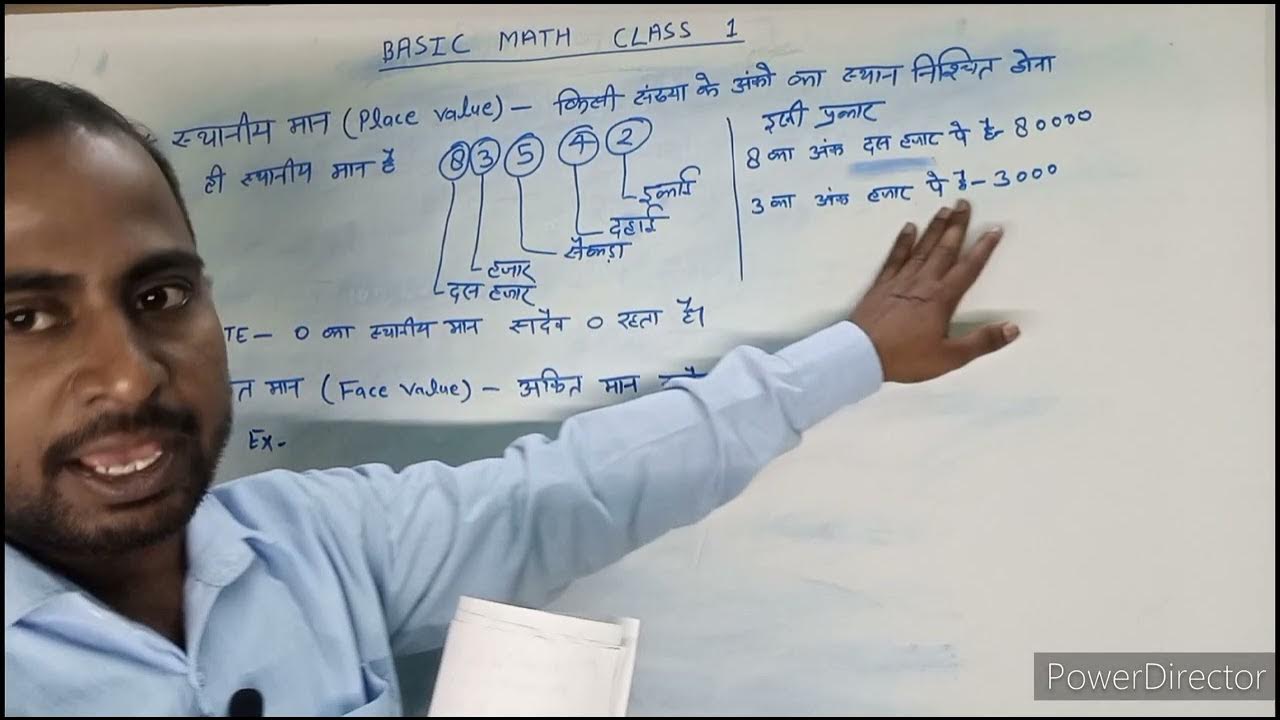 BASIC MATH CLASS 1
स्थानीय मान (Place value) – किसी संख्या के अंको का स्थान निश्चित होना
ही स्थानीय मान है
8 3 5 4 2
इकाई
दहाई
सैकड़ा
हजार
दस हजार
इसी प्रकार
8 का अंक दस हजार पे है- 80000
3 का अंक हजार पे है- 3000
TE – 0 का स्थानीय मान सदैव 0 रहता है।
त मान (Face value) – अंकित मान
Ex-
PowerDirector